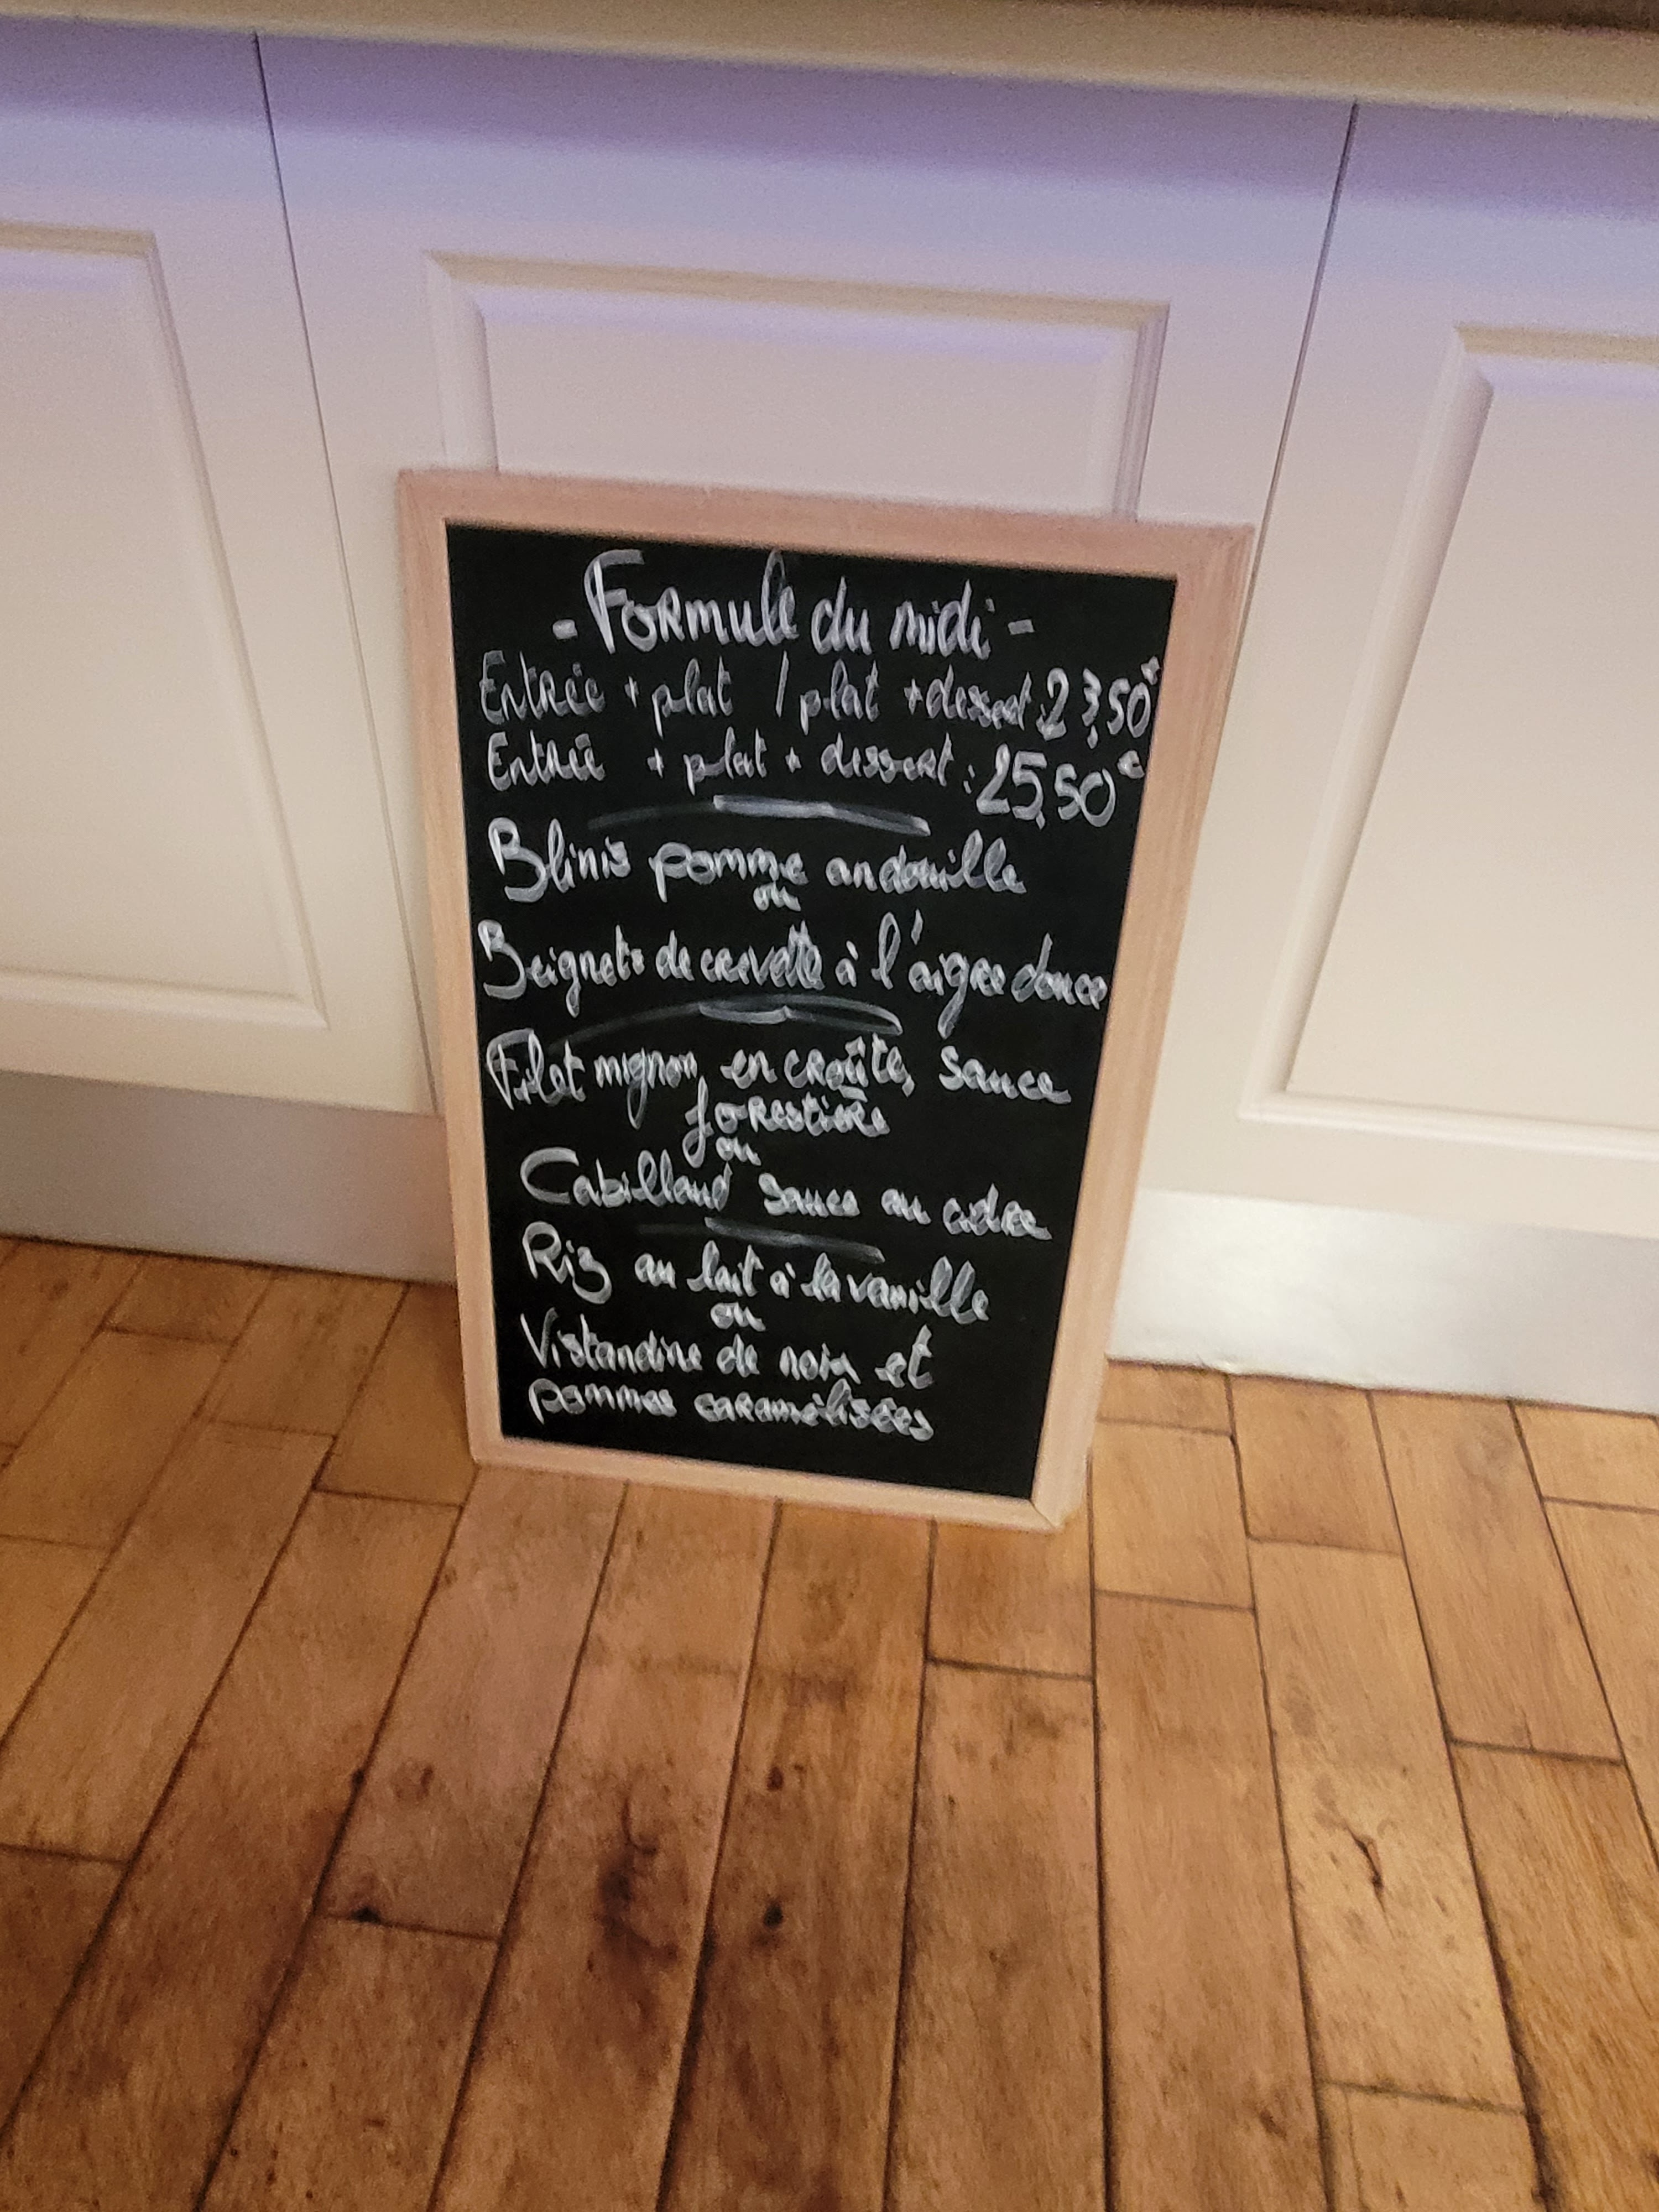 - Formule du midi -
Entrée + plat / plat + dessert : 23,50€
Entrée + plat + dessert : 25,50€
Blinis pomme andouille
ou
Beignets de crevette à l'aigre douce
Filet mignon en croûte, sauce
forestière
ou
Cabillaud sauce au cidre
Riz au lait à la vanille
ou
Vistandine de noix et
pommes caramélisées